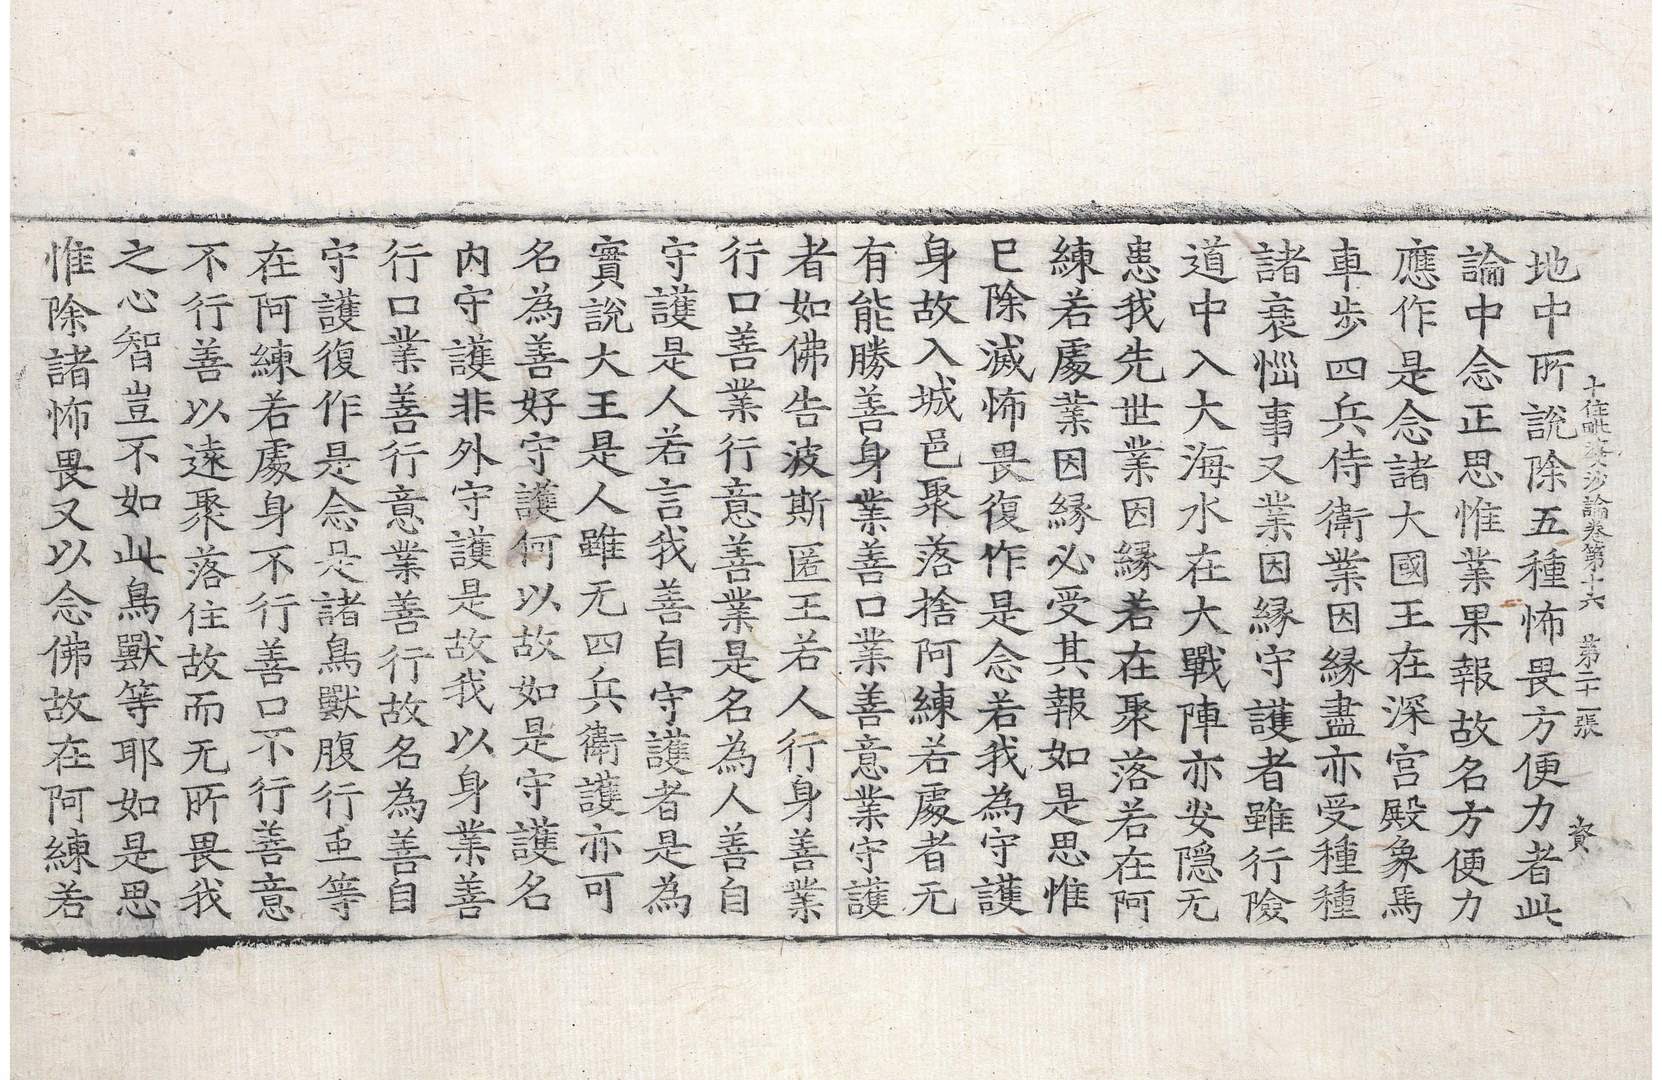 十住毗婆沙論卷第十六　第二十一張　資
地中所說除五種怖畏方便力者此
論中念正思惟業果報故名方便力
應作是念諸大國王在深宮殿象馬
車步四兵侍衛業因緣盡亦受種種
諸衰惱事又業因緣守護者雖行險
道中入大海水在大戰陣亦安隱无
患我先世業因緣若在聚落若在阿
練若處業因緣必受其報如是思惟
已除滅怖畏復作是念若我為守護
身故入城邑聚落捨阿練若處者无
有能勝善身業善口業善意業守護
者如佛告波斯匿王若人行身善業
行口善業行意善業是名為人善自
守護是人若言我善自守護者是為
實說大王是人雖无四兵衛護亦可
名為善好守護何以故如是守護名
內守護非外守護是故我以身業善
行口業善行意業善行故名為善自
守護復作是念是諸鳥獸腹行虫等
在阿練若處身不行善口不行善意
不行善以遠聚落住故而无所畏我
之心智豈不如此鳥獸等耶如是思
惟除諸怖畏又以念佛故在阿練若